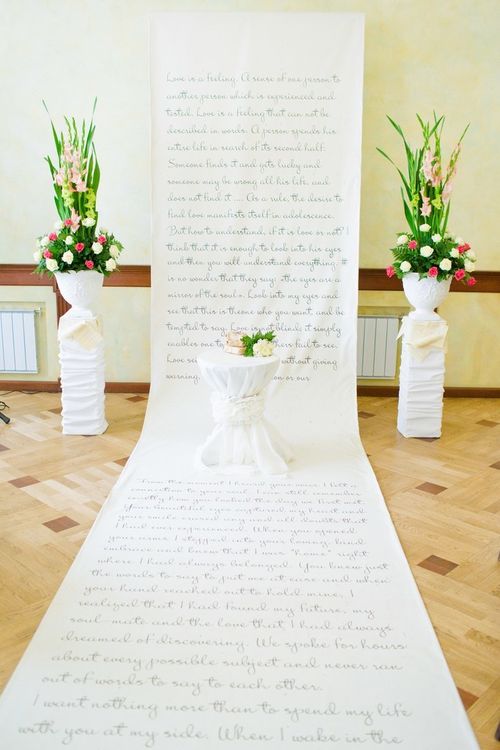 Love is a feeling. A sense of one person to
another person which is experienced and
tested. Love is a feeling that can not be
described in words. A person spends his
entire life in search of its second half.
Someone finds it and gets lucky and
someone may be wrong all his life, and
does not find it .... As a rule, the desire to
find love manifests itself in adolescence.
But how to understand, if it is love or not? I
think that it is enough to look into his eyes
and then you will understand everything. It
is no wonder that they say: «the eyes are a
mirror of the soul». Look into my eyes and
see that this is the one who you want, and be
tempted to say. Love is not blind; it simply
enables one to others fail to see.
Love without giving
warning, or our
From the moment I heard your voice I felt a
connection to your soul. I can still remember
exactly how you looked the day we first met.
Your beautiful eyes captured my heart and
your smile erased any and all doubts that
I had ever experienced. When you opened
your arms I stepped into your loving, kind
embrace and knew that I was "home" right
where I had always belonged. You knew just
the words to say to put me at ease and when
your hand reached out to hold mine, I
realized that I had found my future, my
soul-mate and the love that I had always
dreamed of discovering. We spoke for hours
about every possible subject and never ran
out of words to say to each other.
I want nothing more than to spend my life
with you at my side. When I wake in the